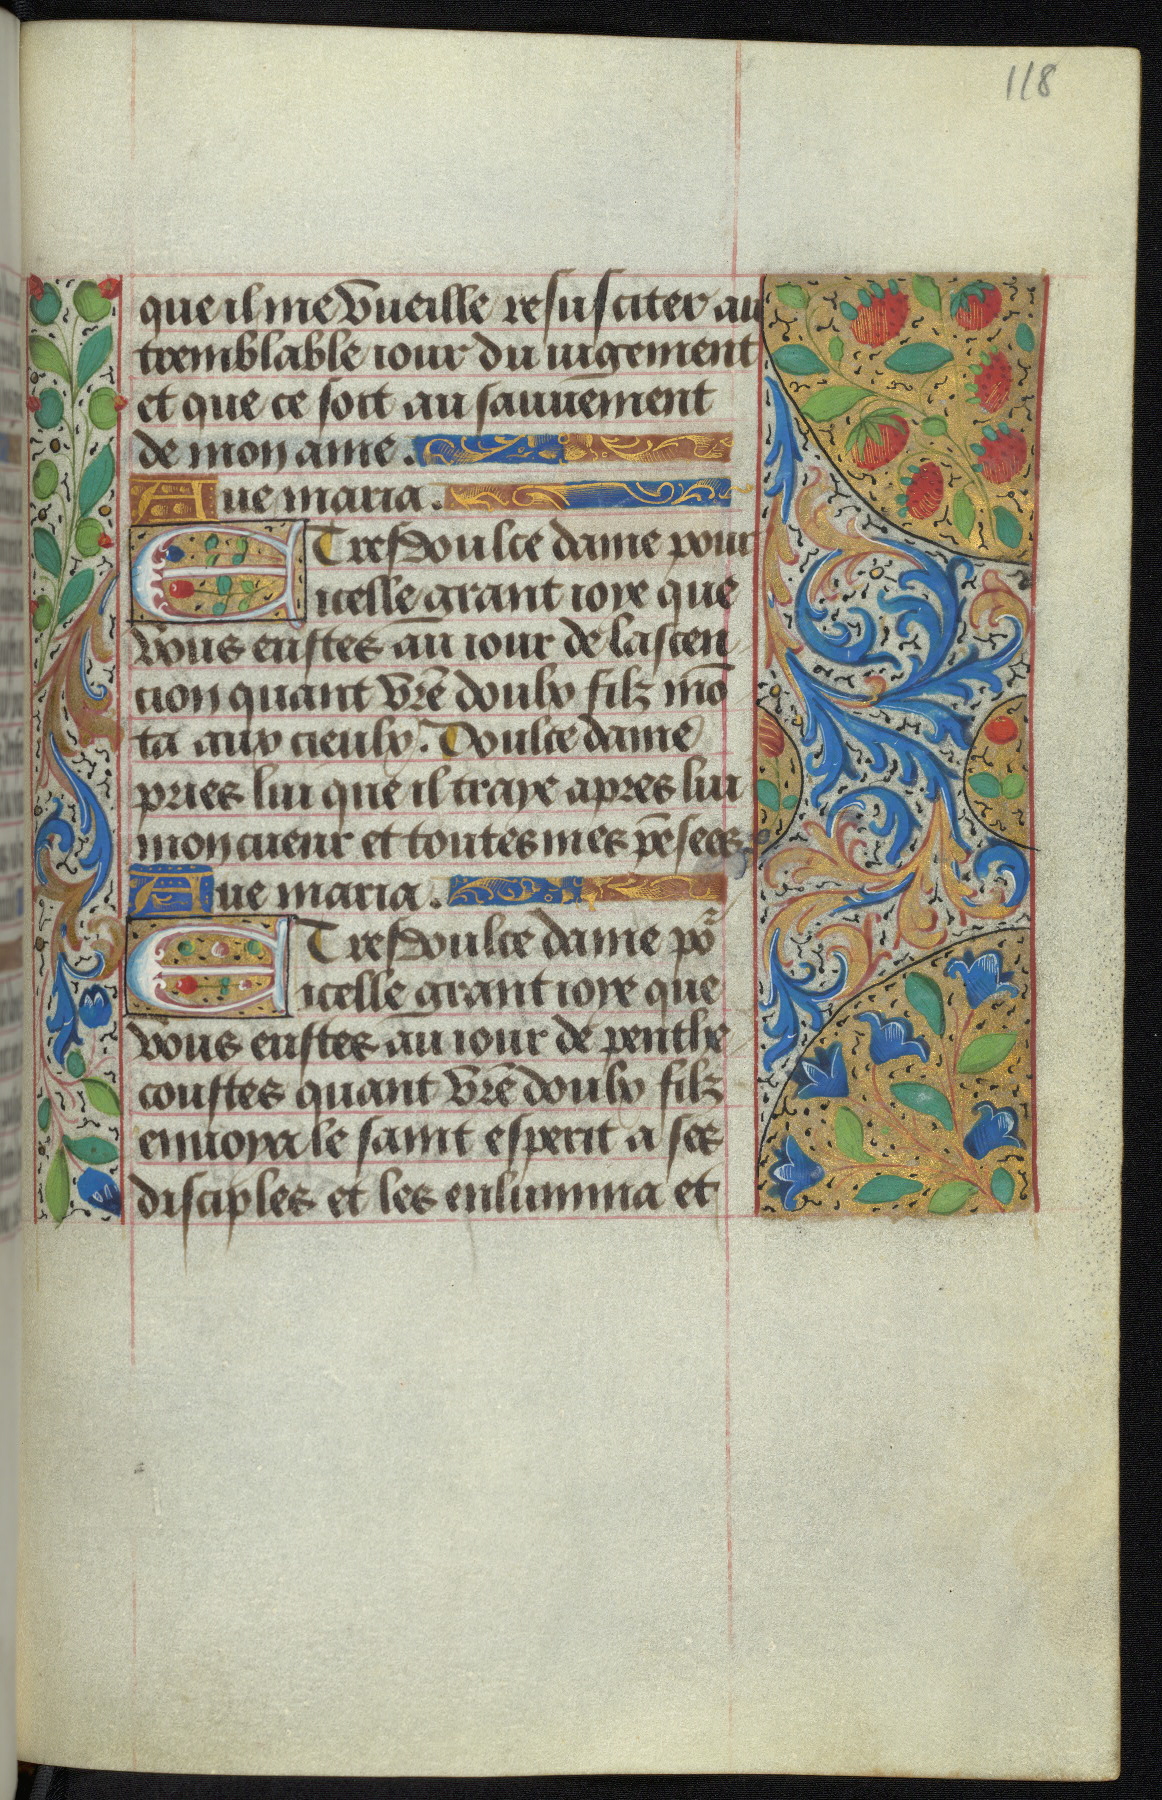 118
que il me vueille resusciter au
tremblable iour du iugement
et que ce soit au sauuement
de mon ame.
Aue maria.
E Tresdoulce dame pour
icelle grant ioye que
vous eustes au iour de lascen
cion quant vr̄e doulx filz mō
ta aux cieulx. Doulce dame
pries lui que il traye apres lui
mon cueur et toutes mes pēsees
Aue maria.
E Tresdoulce dame por̄
icelle grant ioye que
vous eustes au iour de penthe
coustes quant vr̄e doulx filz
enuoya le saint esperit a ses
disciples et les enlumina et